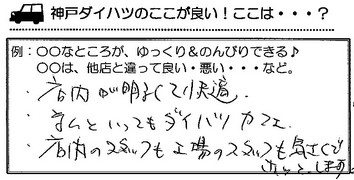 神戸ダイハツのここが良い！ここは・・・？
例：○○なところが、ゆっくり＆のんびりできる♪
○○は、他店と違って良い・悪い・・・など。
・店内が明るくて快適。
・なんといってもダイハツカフェ。
・店内のスタッフも工場のスタッフも気さくで
ホッとします。